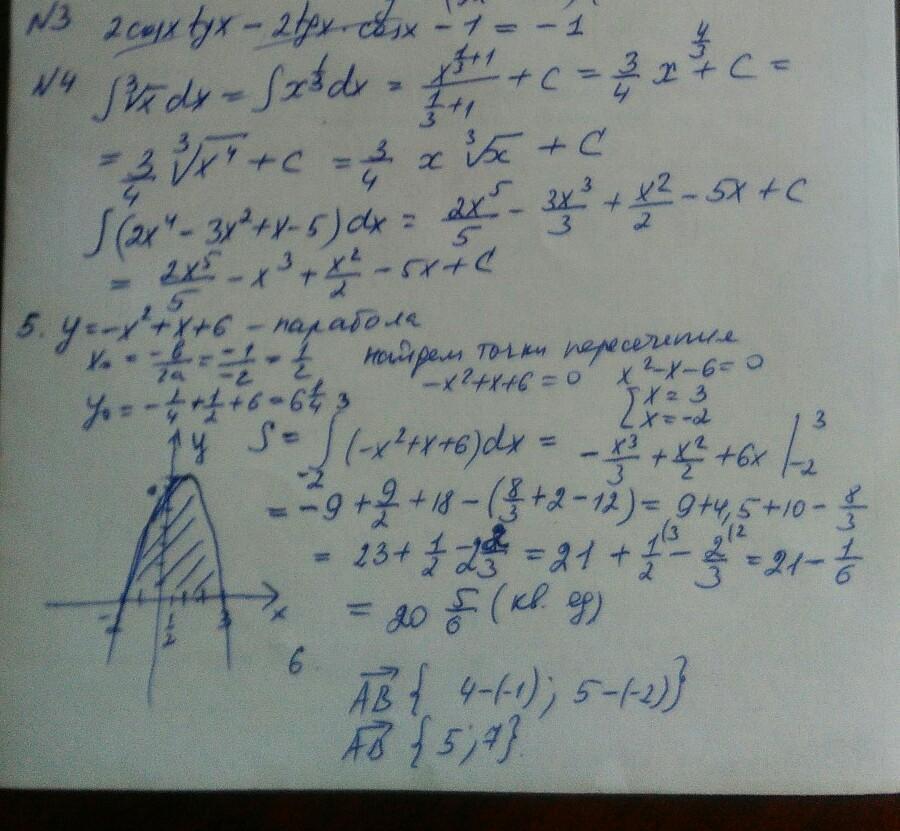 N3 2cosx tgx - 2tgx · cosx - 1 = -1
N4 ∫∛x dx = ∫x^(1/3) dx = x^(1/3+1)/(1/3+1) + C = 3/4 x^(4/3) + C =
= 3/4 ∛x⁴ + C = 3/4 x ∛x + C
∫(2x⁴ - 3x² + x - 5) dx = 2x⁵/5 - 3x³/3 + x²/2 - 5x + C
= 2x⁵/5 - x³ + x²/2 - 5x + C
5. y = -x² + x + 6 - парабола
x₀ = -b/2a = -1/-2 = 1/2 найдем точки пересечения
-x² + x + 6 = 0 x² - x - 6 = 0
y₀ = -1/4 + 1/2 + 6 = 6 1/4 [x = 3
x = -2
S = ∫₋₂³ (-x² + x + 6) dx = -x³/3 + x²/2 + 6x |₋₂³
= -9 + 9/2 + 18 - (8/3 + 2 - 12) = 9 + 4,5 + 10 - 8/3
= 23 + 1/2 - 2 2/3 = 21 + 1/2 (3 - 2/3 (2 = 21 - 1/6
= 20 5/6 (кв. ед)
y
x
-2
1/2
3
6
AB { 4-(-1); 5-(-2)}
AB {5;7}